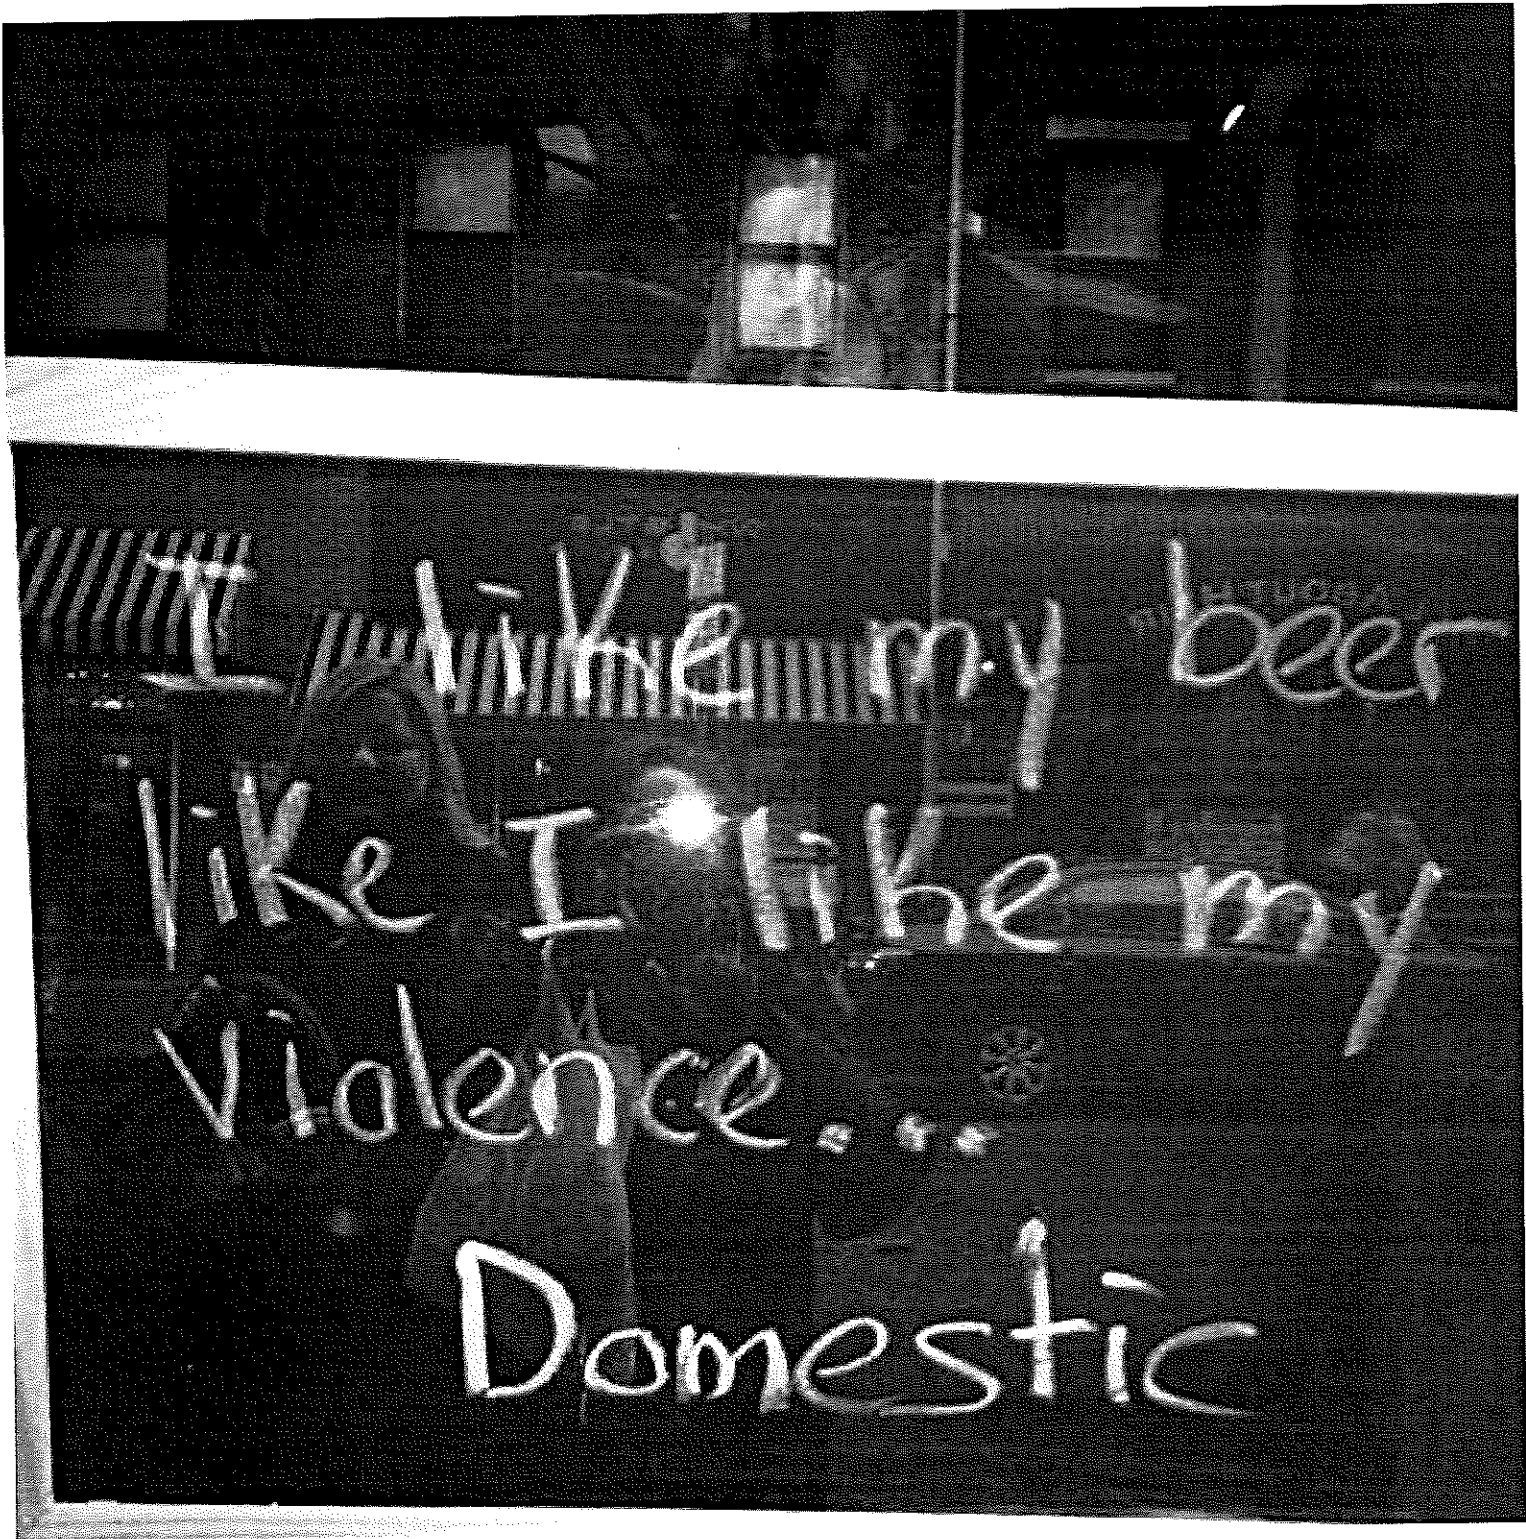 I like my beer
like I like my
Violence...
Domestic